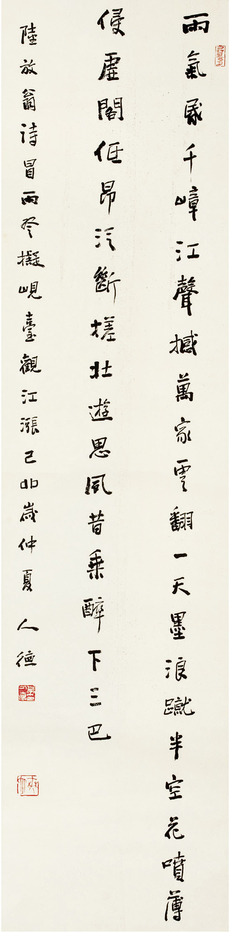 雨氣昏千嶂江聲撼萬家雲翻一天墨浪蹴半空花噴薄
侵虛閣低昂泛斷槎壯遊思夙昔乘醉下三巴
陸放翁詩冒雨登擬峴臺觀江漲己卯歲仲夏 人德